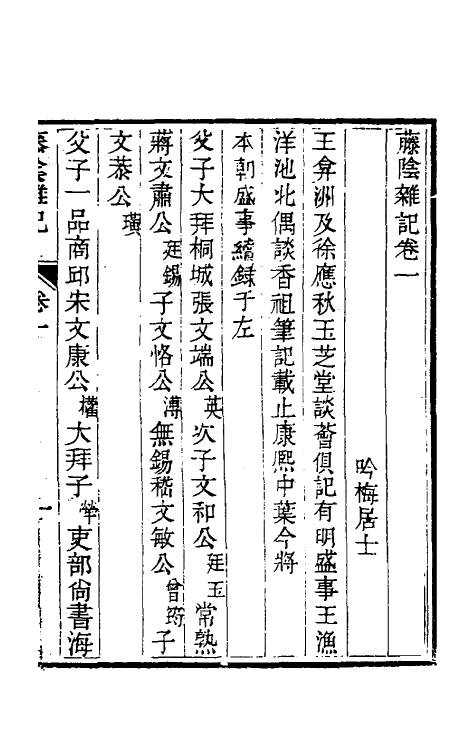 藤陰雜記卷一
吟梅居士
王弇洲及徐應秋玉芝堂談薈俱記有明盛事王漁
洋池北偶談香祖筆記載止康熙中葉今將
本朝盛事續錄于左
父子大拜桐城張文端公英次子文和公廷玉常熟
蔣文肅公廷錫子文恪公溥無錫嵇文敏公曾筠子
文恭公璜
父子一品商邱宋文康公權大拜子犖吏部尚書海
藤陰雜記 卷一 一